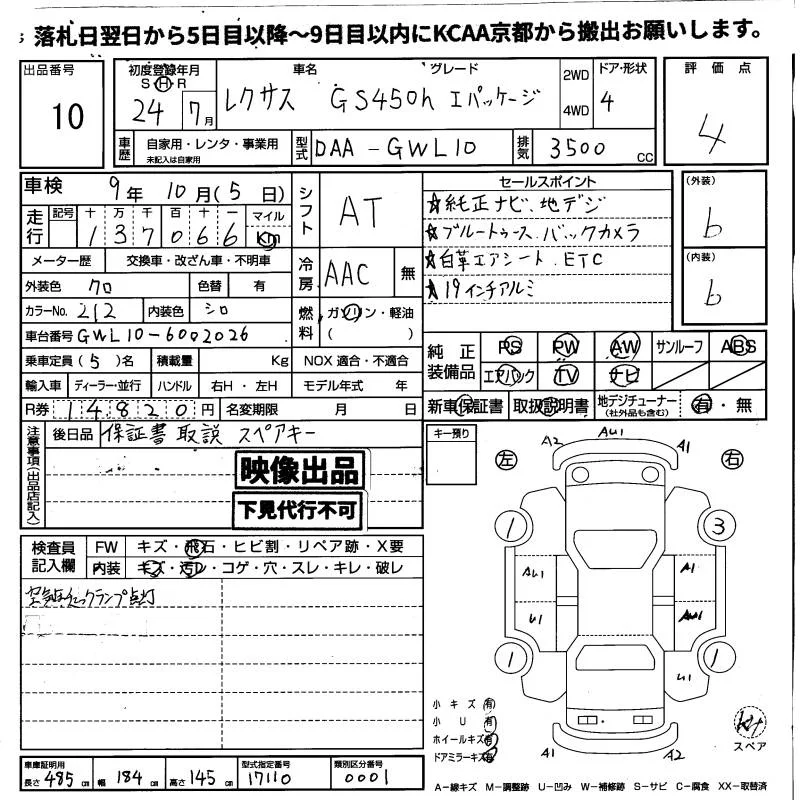 落札日翌日から5日目以降～9日目以内にKCAA京都から搬出お願いします。
出品番号 10
初度登録年月 S H R 24 7月
車名 レクサス GS450h
グレード Iパッケージ
2WD 4WD
ドア・形状 4
評価点 4
車歴 自家用・レンタ・事業用 未記入は自家用
型式 DAA-GWL10
排気 3500 CC
車検 9年 10月(5日)
走行 記号 十 万 千 百 十 一 マイル Km
1 3 7 0 6 6
メーター歴 交換車・改ざん車・不明車
外装色 クロ 色替 有
カラーNo. 212 内装色 シロ
車台番号 GWL10-6002026
乗車定員(5)名 積載量 Kg
輸入車 ディーラー・並行 ハンドル 右H・左H
R券 14820円 名変期限 月 日
シフト AT
冷房 AAC 無
燃料 ガソリン・軽油 ( )
NOX 適合・不適合
モデル年式 年
セールスポイント
☆純正ナビ、地デジ
☆ブルートゥース、バックカメラ
☆白革エアシート、ETC
☆19インチアルミ
(外装) b
(内装) b
純正装備品 PS PW AW サンルーフ ABS
エアバック TV ナビ
新車保証書 取扱説明書 地デジチューナー (社外品も含む) 有・無
注意事項(出品店記入)
後日品 保証書 取説 スペアキー
映像出品
下見代行不可
キー預り
検査員記入欄
FW キズ・飛石・ヒビ割・リペア跡・X要
内装 キズ・汚レ・コゲ・穴・スレ・キレ・破レ
空気圧チェックランプ点灯
左 右
A2 AU1 A1
1 3
AU1 A1
U1 AU1
1 1
U1
A1 A2
小キズ 有
小U 有
ホイールキズ 有
ドアミラーキズ 有
スペア
車庫証明用 長さ 485cm 幅 184cm 高さ 145cm
型式指定番号 17110
類別区分番号 0001
A－線キズ M－調整跡 U－凹み W－補修跡 S－サビ C－腐食 XX－取替済